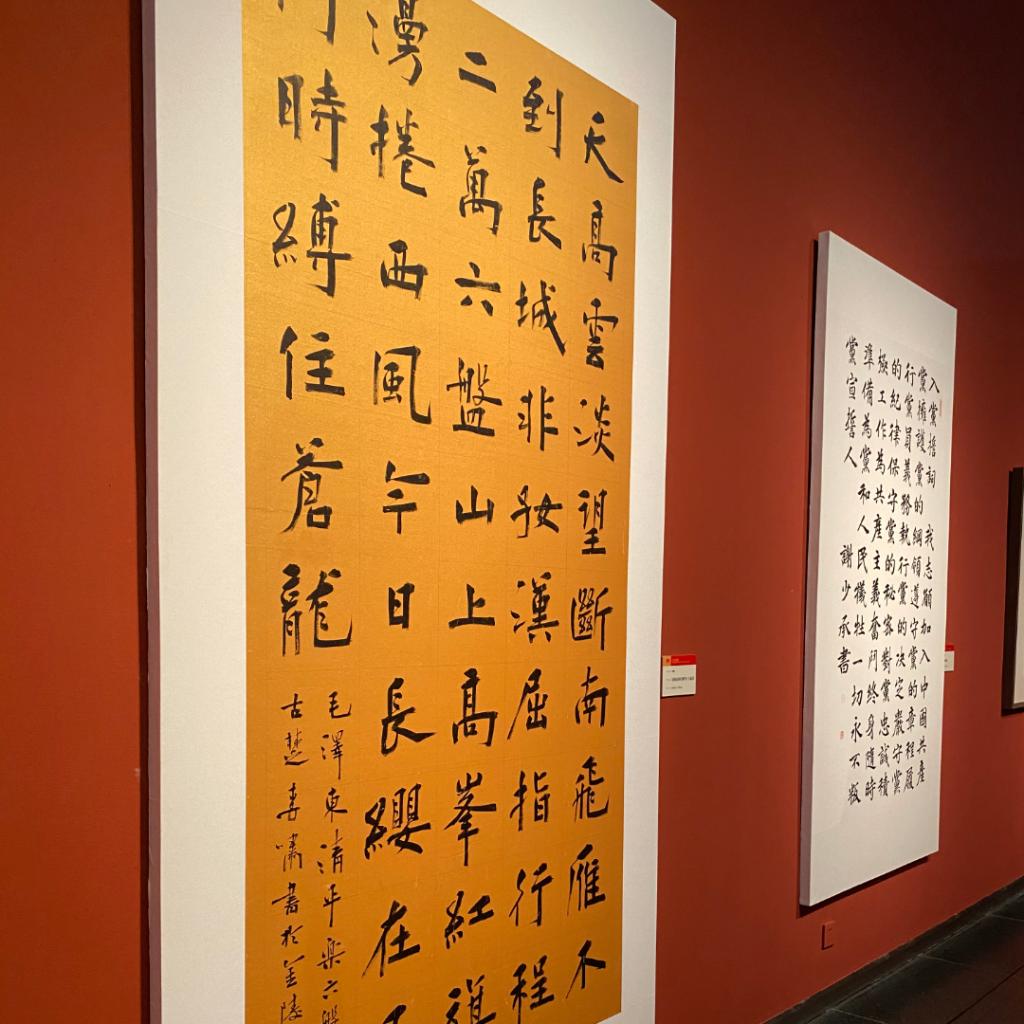 天高雲淡望斷南飛雁不
到長城非好漢屈指行程
二萬六盤山上高峯紅旗
漫捲西風今日長纓在
時縛住蒼龍
毛澤東清平樂六盤
古楚李嘯書於金陵
入黨誓詞 我志願加入中國共產
黨擁護黨的綱領遵守黨的章程履
行黨員義務執行黨的决定嚴守黨
的紀律保守黨的秘密對黨忠誠積
極工作為共產主義奮鬥終身隨時
準備為黨和人民犧牲一切永不叛
黨宣誓人 謝少承書